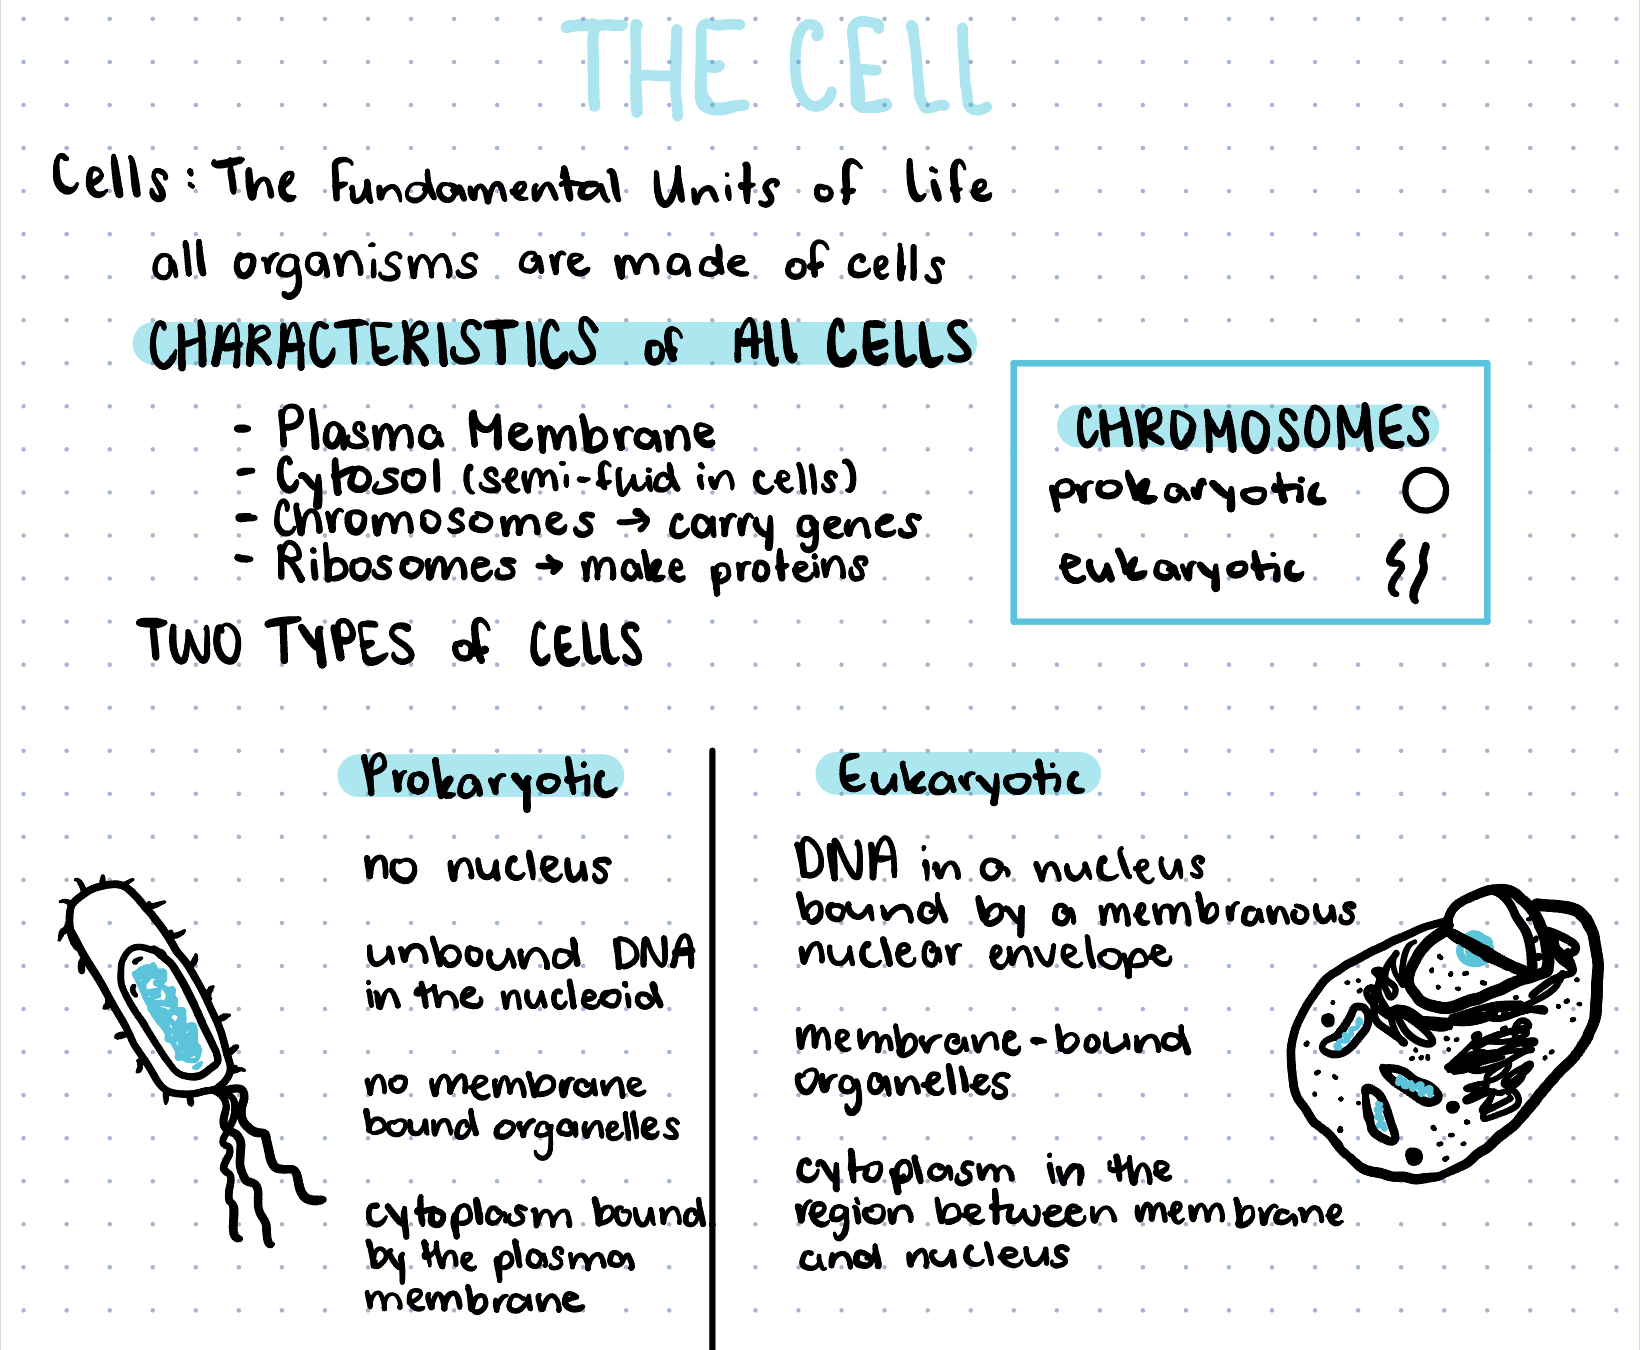 THE CELL
Cells: The Fundamental Units of Life
all organisms are made of cells
CHARACTERISTICS of All CELLS
- Plasma Membrane
- Cytosol (semi-fluid in cells)
- Chromosomes → carry genes
- Ribosomes → make proteins
CHROMOSOMES
prokaryotic
eukaryotic
TWO TYPES of CELLS
Prokaryotic
no nucleus
unbound DNA
in the nucleoid
no membrane
bound organelles
cytoplasm bound
by the plasma
membrane
Eukaryotic
DNA in a nucleus
bound by a membranous
nuclear envelope
membrane-bound
organelles
cytoplasm in the
region between membrane
and nucleus